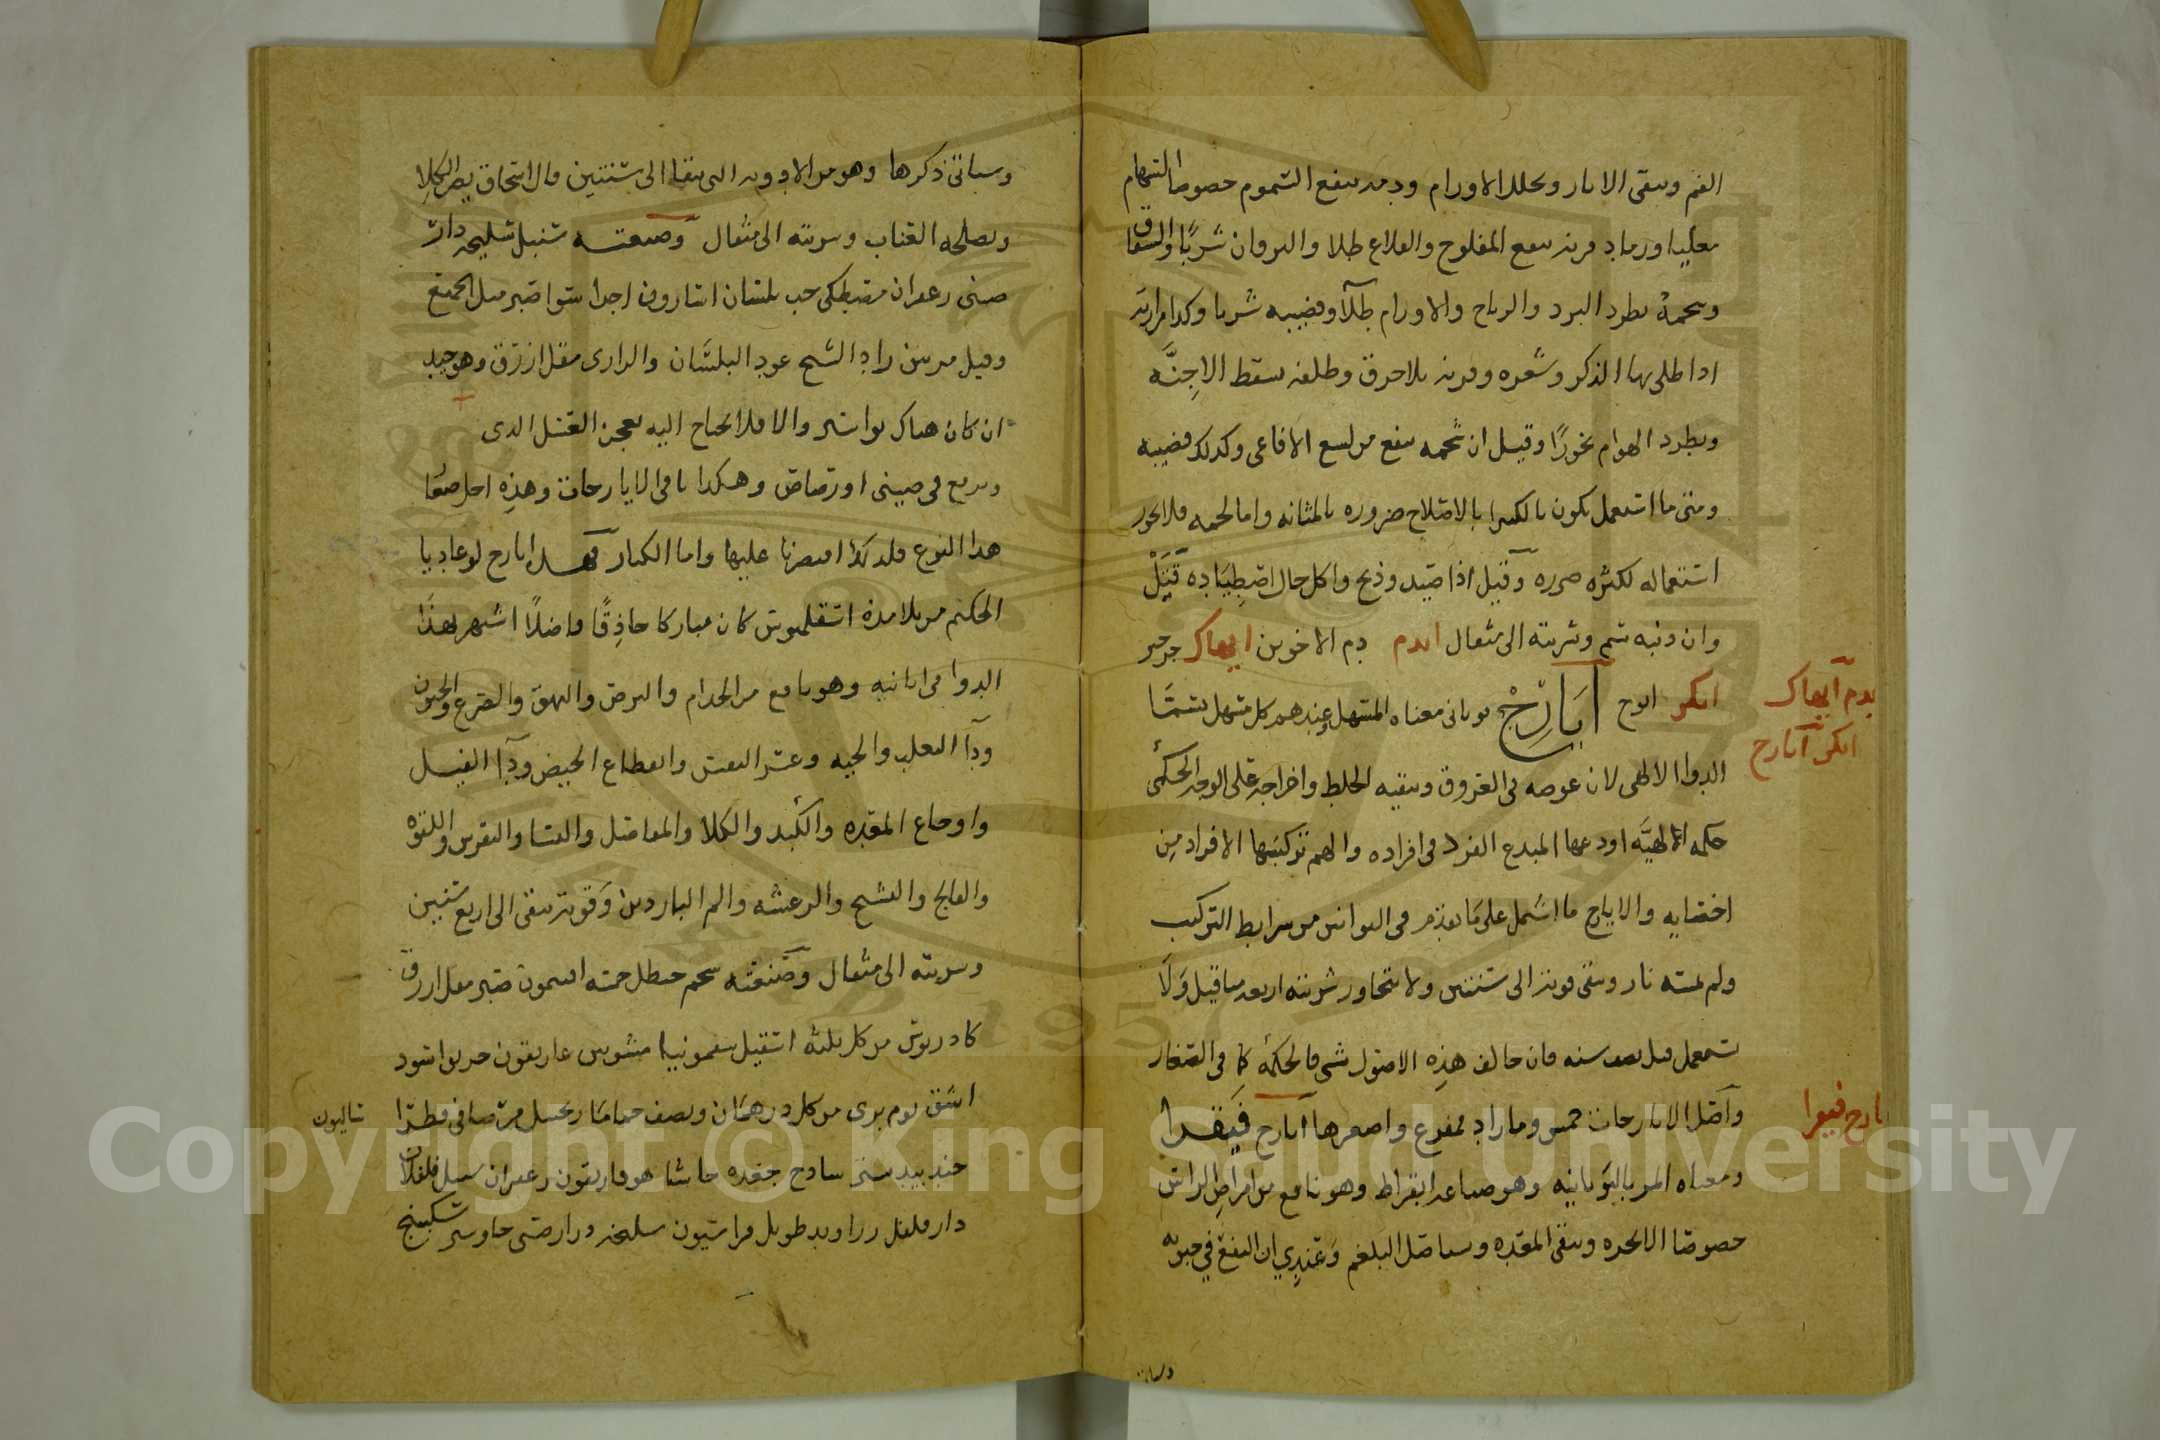 الفم وينقى الاثار ويحلل الاورام ودمه ينفع السموم خصوصا السهام
مغليا ورماد قرنه ينفع المفلوج والقلاع طلا واليرقان شربًا والسعال
وشحمه يطرد البرد والرياح والاورام طلآ وقضيبه شربا وكذا مرارته
اذا طلى بها الذكر وشعره وقرنه بلا حرق وظلفه يسقط الاجِنَّه
ويطرد الهوام بخورًا وقيل ان شحمه ينفع من لسع الافاعى وكذلك قضيبه
ومتى ما استعمل يكون بالكثيرا بالاصلاح ضروره بالمثانه واما لحمه فلا يجوز
استعماله لكثره ضرره وقيل اذا صيد وذبح واكل حال اصطِيَادِه قَتَلْ
وان ذنبه سم وشربته الى مثقال ايدم دم الاخوين ايهاك جرجير
ايكر اوج اَيَارِجْ يونانى معناه المسهل وعندهم كل مسهل يسمَّا
الدوا الالهى لان غوصه فى العروق وتنقيه الخلط واخراجه على الوجه الحكمى
حكمه الالهيَّه اودعها المبدع الفرد فى افراده والهم تركيبها الافراد مِن
اخصايه والايارج ما اشتمل على مَا تقدم فى القوانين من شرايط التركيب
ولم تمسه نار وتبقى قوته الى سنتين ولا تتجاوز شربته اربعه مثاقيل وَلَا
تستعمل قبل نصف سنه فان خالف هذِه الاصول شى فالحكمة كما فى الصغار
وآصل الايارجات خمس وما زاد مفرع واصغرها آيارج فَيْقرا
ومعناه المر باليوَنانيه وهو صناعه ابقراط وهو نافع من امراض الراس
خصوصًا الابخره وينقى المعده ويستاصل البلغم وعَندِي ان النفع فى حبوبه
بدم آيهاك
ايكر آيارج
يارج فيقرا
وسياتى ذكرها وهو من الادويه التى تبقا الى سنتين قال اسحاق يضر الكلا
ويصلحه العناب وشربته الى مثقال وصنعته سنبل سليخه دار
صينى زعفران مصطكى حب بلسان اسارون اجزا سوا صبر مثل الجميع
وقيل مرتين زاد الشيخ عود البلسَان والرازى مقل ازرق وهو جيد
ان كان هناك بواسير والا فلا يحتاج اليه يعجن العسل الذى
ويرفع فى صينى او رصاص وهكذا باقى الايارجات وهذِه اجل صغا
هذا النوع فلذلك اقتصرنا عليها واما الكبار فهـ ايارج لوغاديا
الحكيم من تلامذه اسقلبيوس كان مباركا حاذِقًا فاضلًا اشتهر بهذَا
الدوا فى زمانه وهو نافع من الجذام والبرص والبهق والصرع والجنون
ودآ الثعلب والحيه وعسر النفس وانقطاع الحيض ودآ الفيل
واوجاع المعده والكَبد والكلا والمفاصل والنسا والنقرس واللقوه
والفالج والتشنج والرعشه والم الباردين وَقوته تبقى الى اربع سَنين
وشربته الى مثقال وصَنعته شحم حنظل خمسه افتيمون صبر مقل ازرق
كمادريوس من كل ثلثه اسقيل سقمونيا مشويين غاريقون خربق اسود
اشق ثوم برى من كل درهمَان ونصف حماما زنجبيل مر صافى فطرا
ساليون
جندبيدستر سادج جعده حاشا هوفاريقون زعفران سنبل فلفلان
دار فلفل زراوند طويل فراسيون سليخه دار صينى جاوشير سكبينج